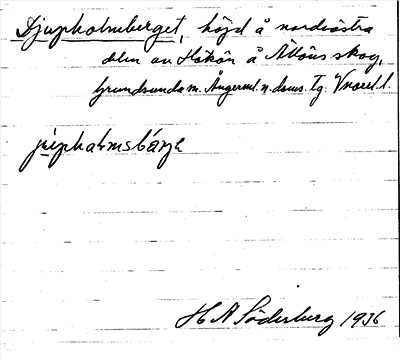 Djupholmsberget, höjd å nordvästra
delen av Hökön å Allöns skog,
Grundsunda sn. Ångerml. n. doms. Tg.
jùpholmsbárje
H A Söderberg 1936